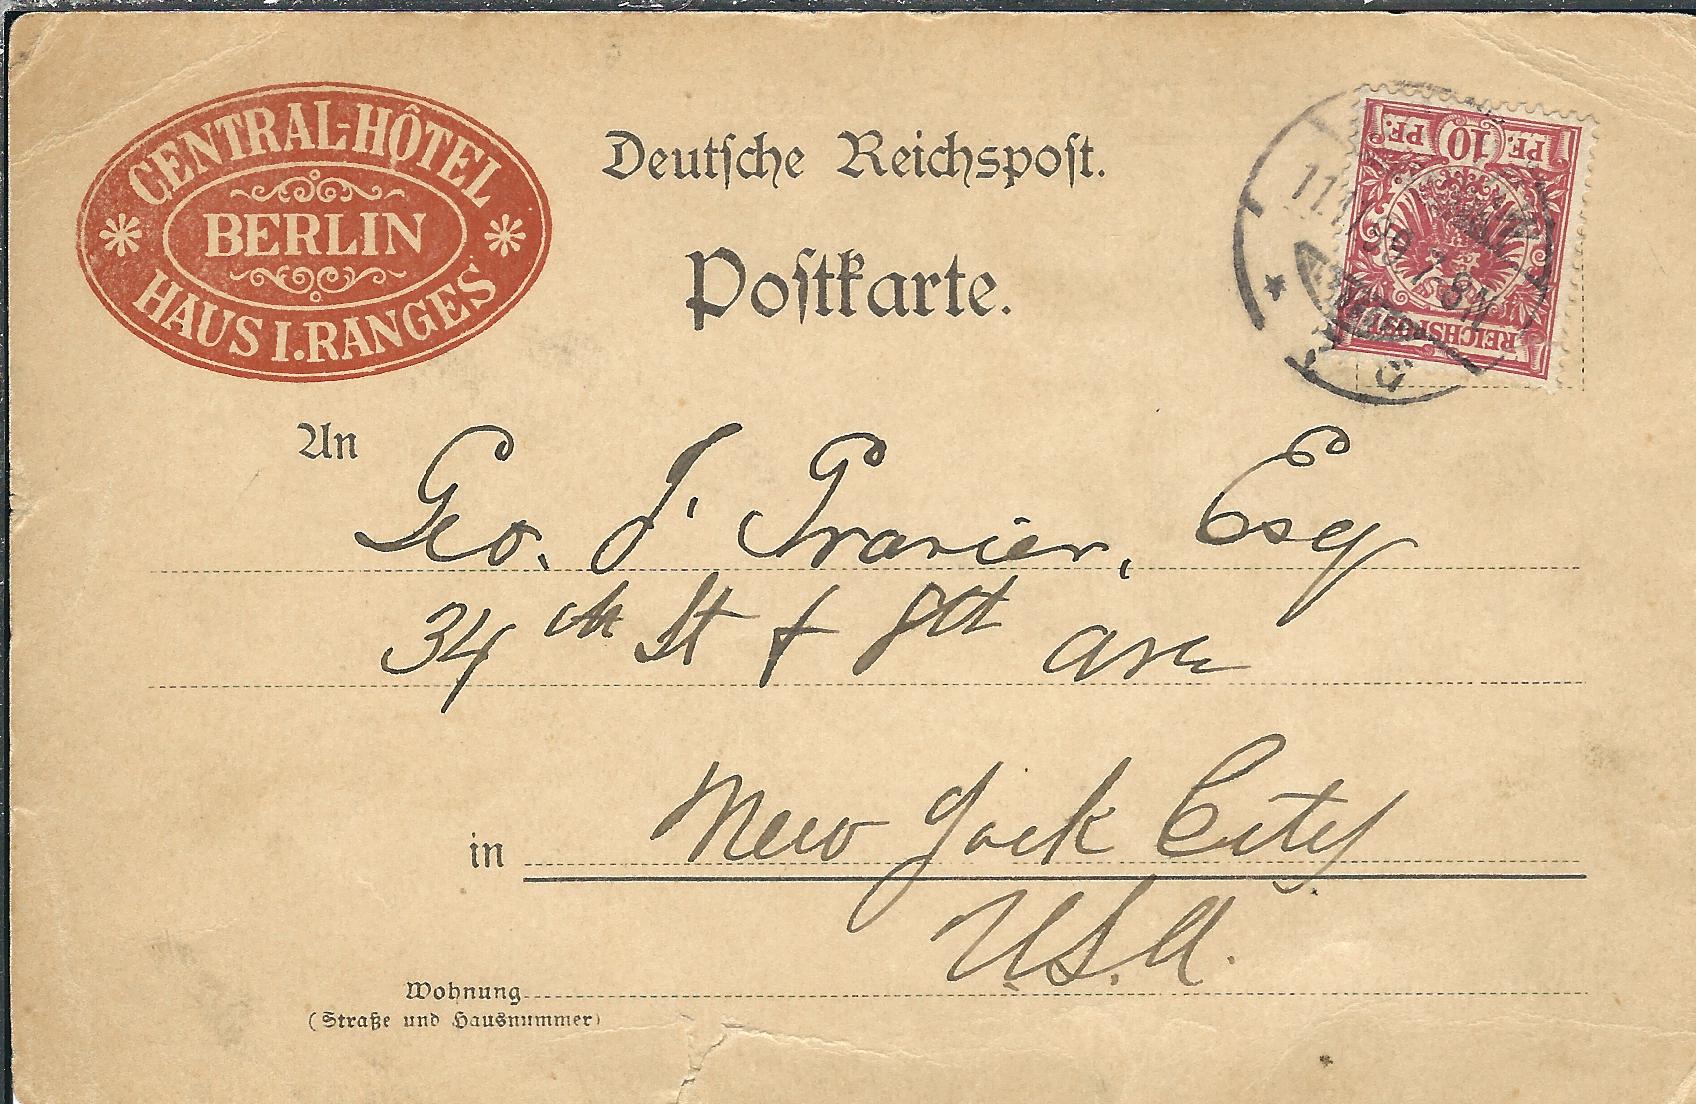 CENTRAL-HÔTEL
BERLIN
HAUS I. RANGES
Deutsche Reichspost.
Postkarte.
10
PF. PF.
REICHSPOST
An
Geo. J. Esq
34th St & 8th Ave
in New York City
U.S.A.
Wohnung
(Straße und Hausnummer)